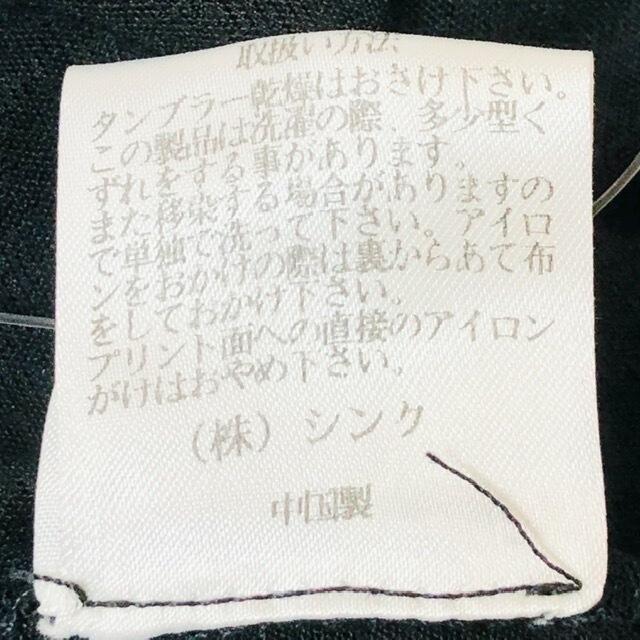 取扱い方法
タンブラー乾燥はおさけ下さい。
この製品は洗濯の際、多少型く
ずれをする事があります。
また移染する場合がありますの
で単独で洗って下さい。アイロ
ンをおかけの際は裏からあて布
をしておかけ下さい。
プリント面への直接のアイロン
がけはおやめ下さい。
(株)シンク
中国製